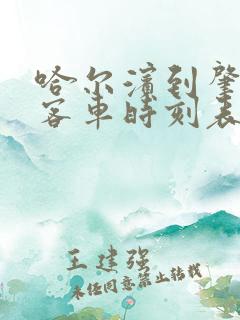 哈尔滨到肇
客车时刻表
王建强
未经同意禁止转载